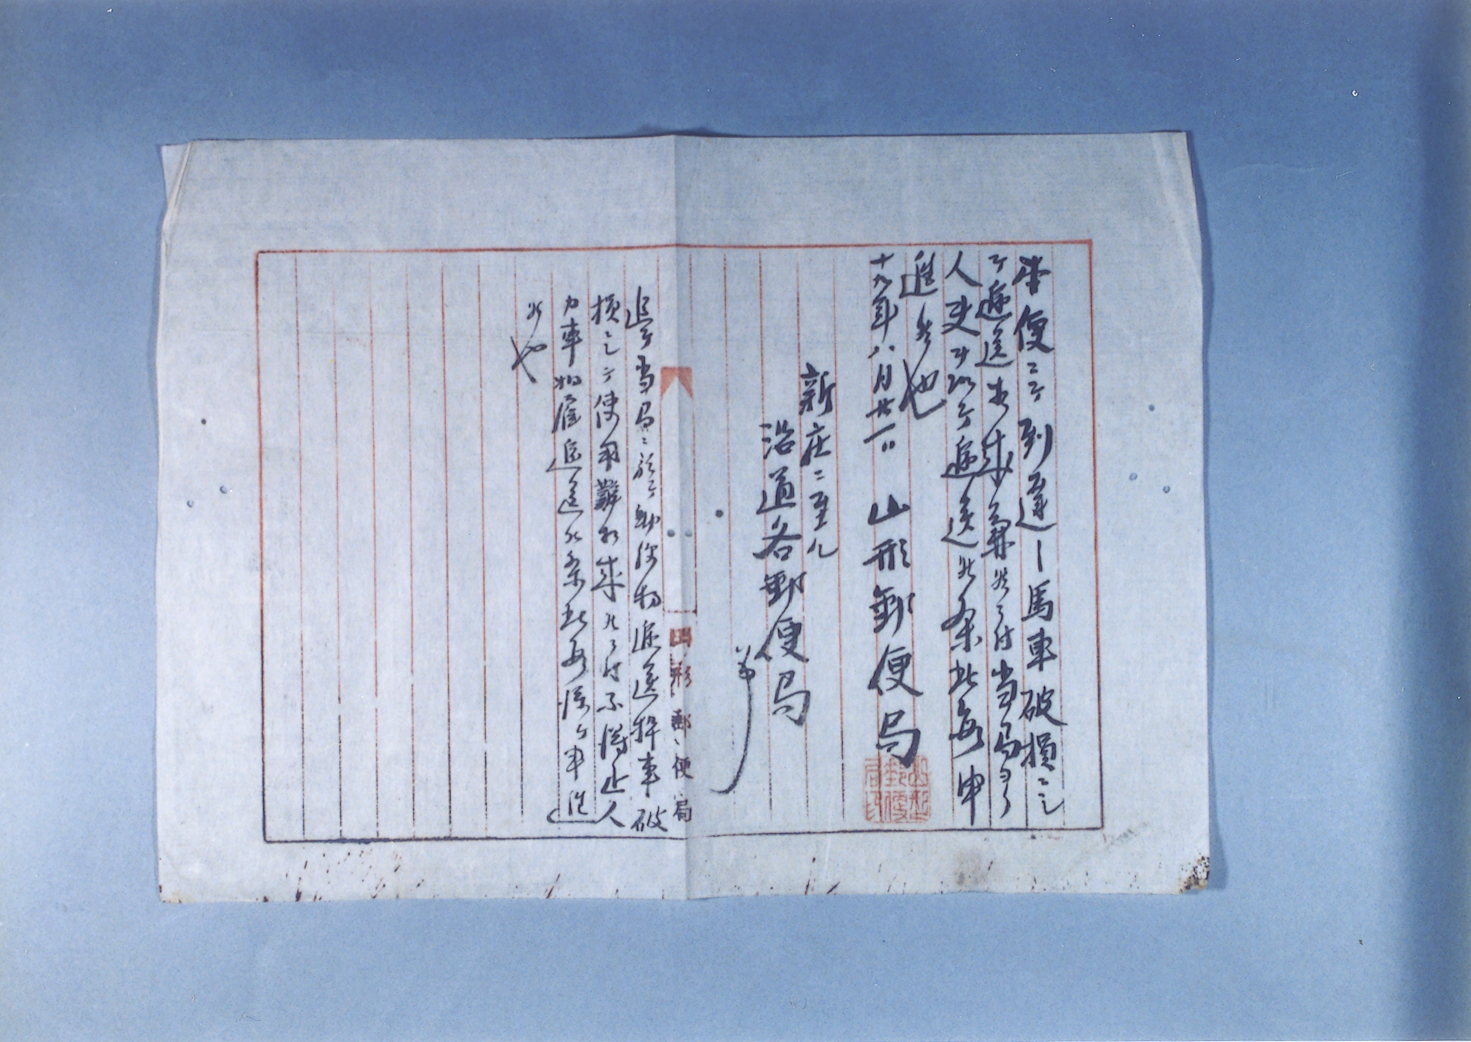 本便ニテ到達ノ馬車破損ニ
テ逓送出来兼候ニ付当局ヨリ
人夫ヲ以テ逓送候条此段申
進候也
十九年八月廿一日 山形郵便局
新庄ニ至ル
沿道各郵便局
追テ当局ニ於テ郵便物逓送馬車破
損ニテ使用難相成候ニ付不得止人
力車相雇逓送候条此段添テ申進
候也
山形郵便局